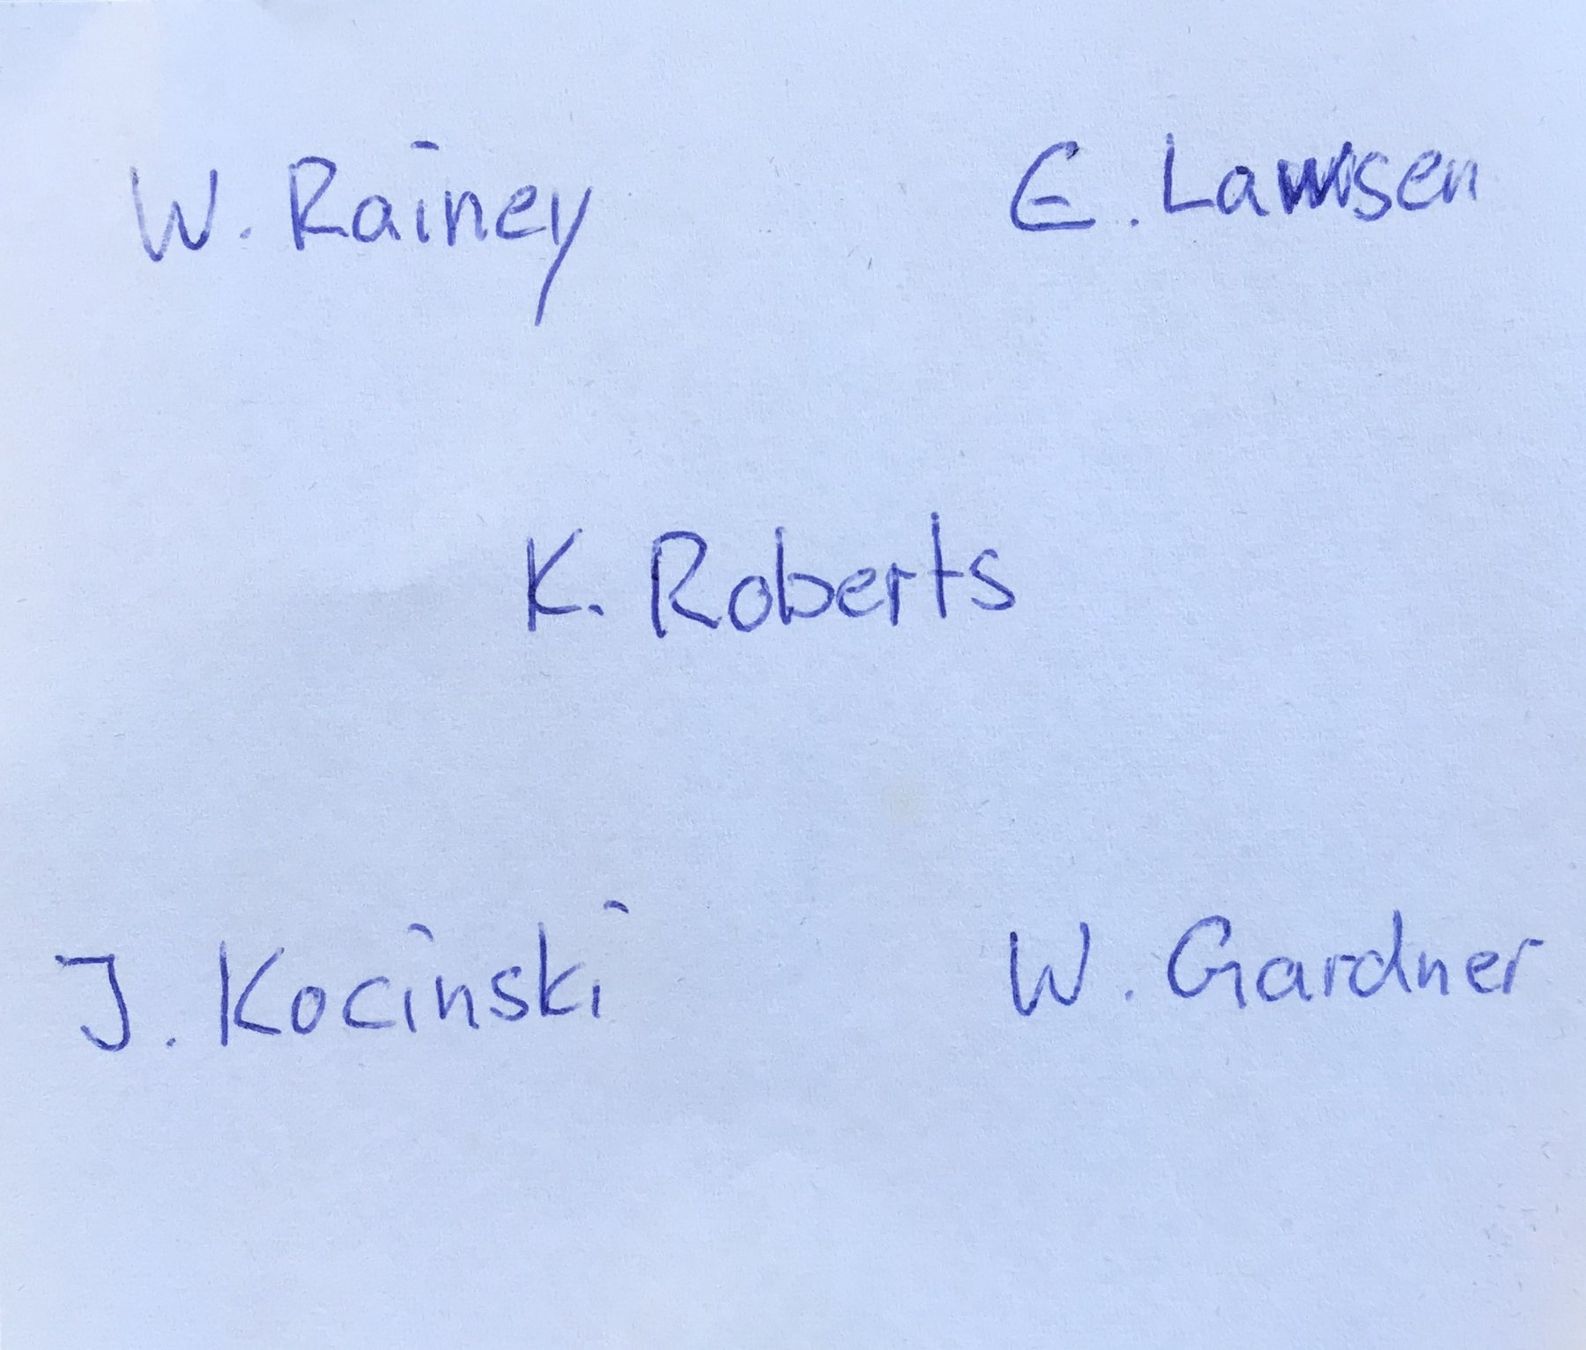 W. Rainey E. Lawsen
K. Roberts
J. Kocinski W. Gardner